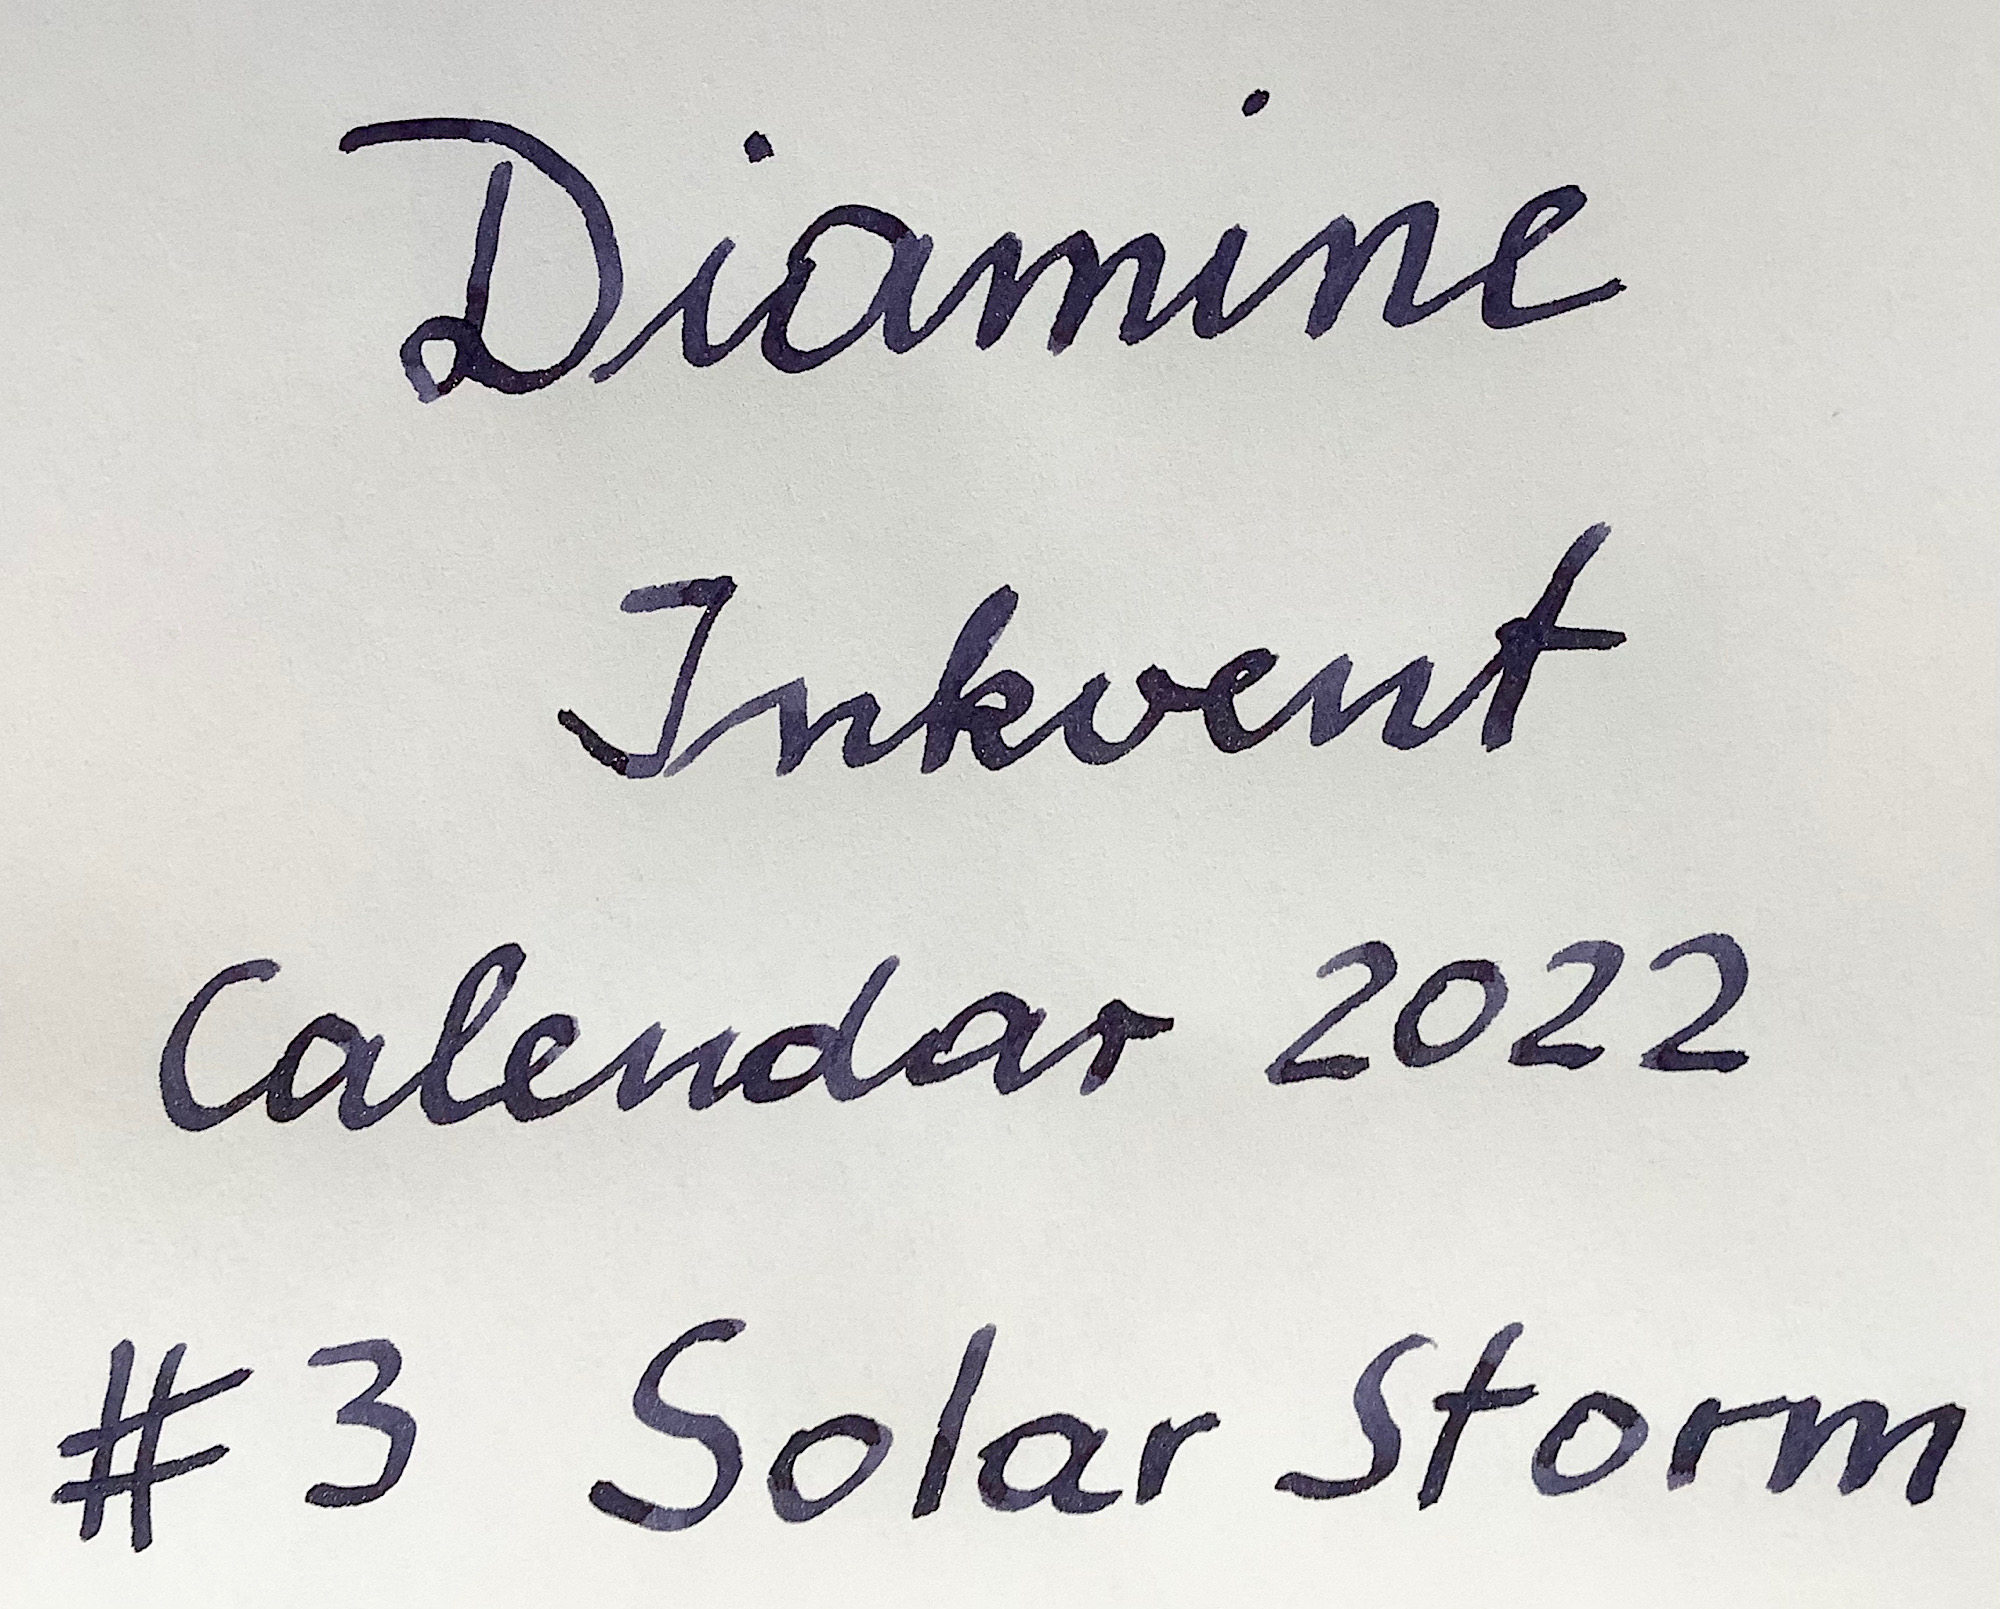 Diamine
Inkvent
Calendar 2022
#3 Solar Storm